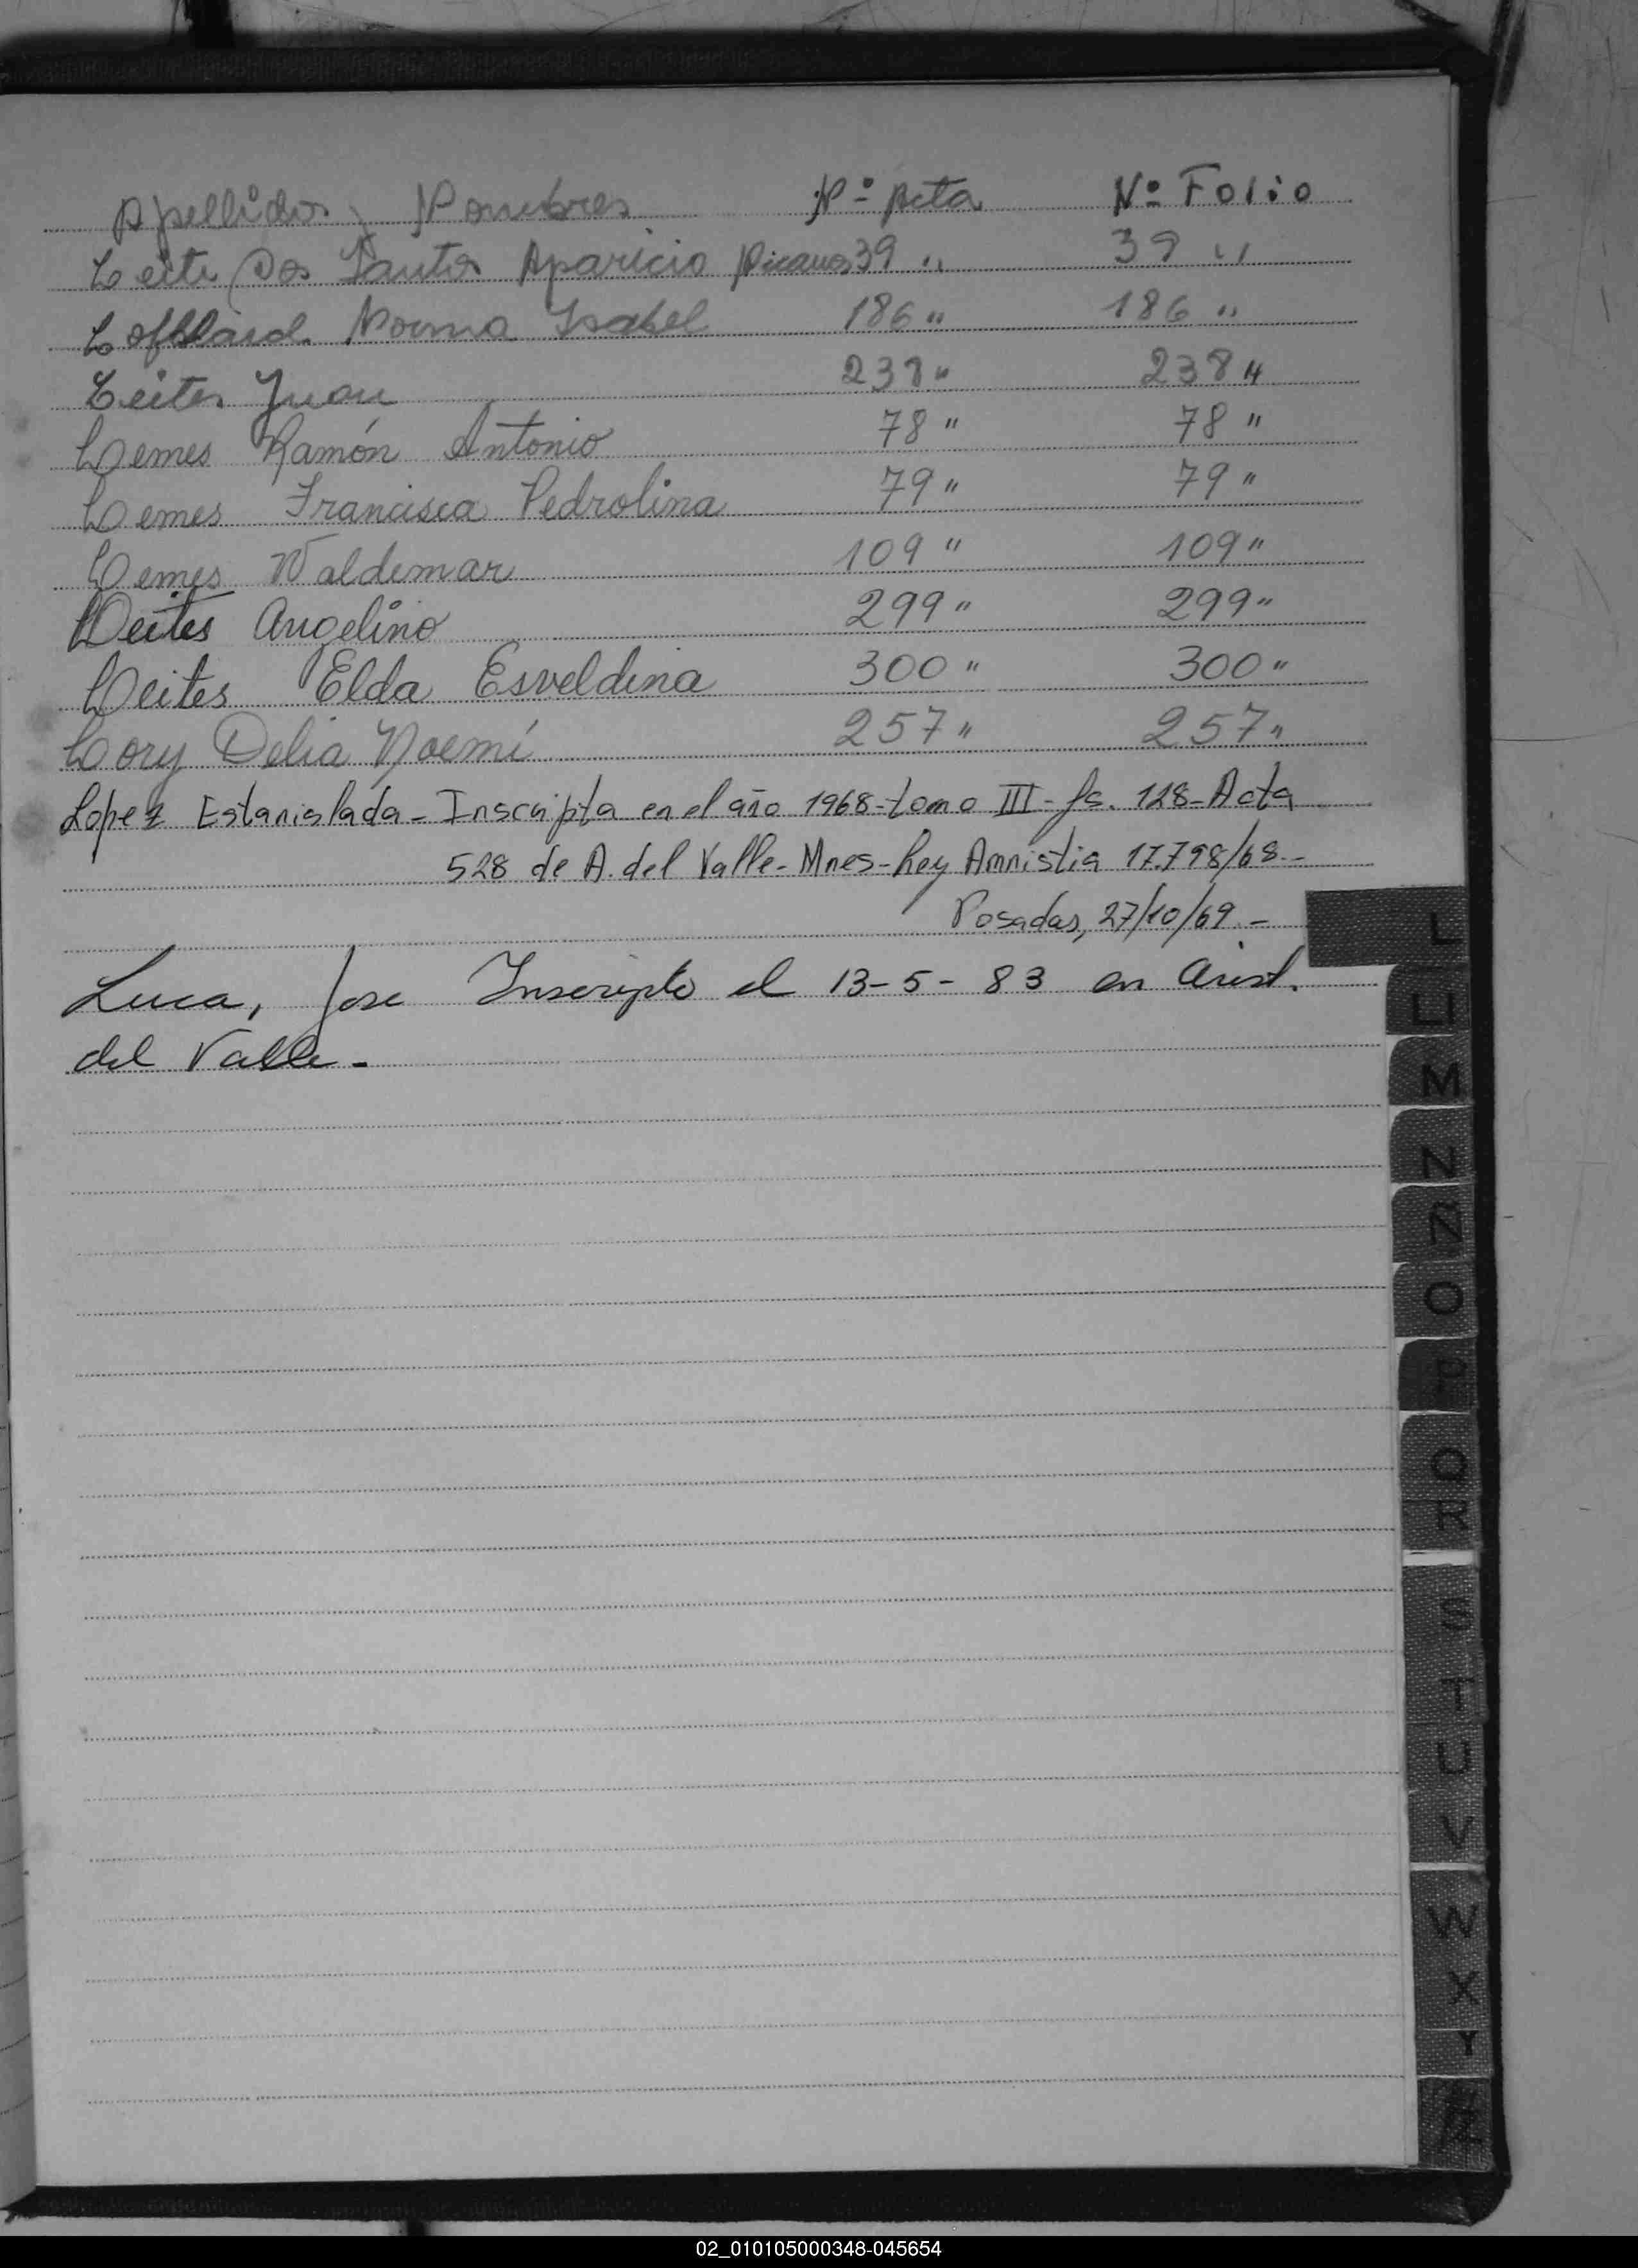 Apellidos y Nombres Nº Acta Nº Folio
Leite Dos Santos Aparicio 39 " 39 "
Norma Isabel 186 " 186 "
Leites Juan 238 " 238 "
Lemes Ramón Antonio 78 " 78 "
Lemes Francisca Pedrolina 79 " 79 "
Lemes Waldemar 109 " 109 "
Leites Angelino 299 " 299 "
Leites Elda Esveldina 300 " 300 "
Lory Delia Noemí 257 " 257 "
Lopez Estanislada - Inscripta en el año 1968 - tomo III - fs. 128 - Acta
528 de A. del Valle - Mnes - Ley Amnistia 17.798/68 -
Posadas, 27/10/69 -
L
Luca, Jose Inscripto el 13-5-83 en Arist.
LL
del Valle -
M
N
Ñ
O
P
Q
R
S
T
U
V
W
X
Y
Z
02_010105000348-045654